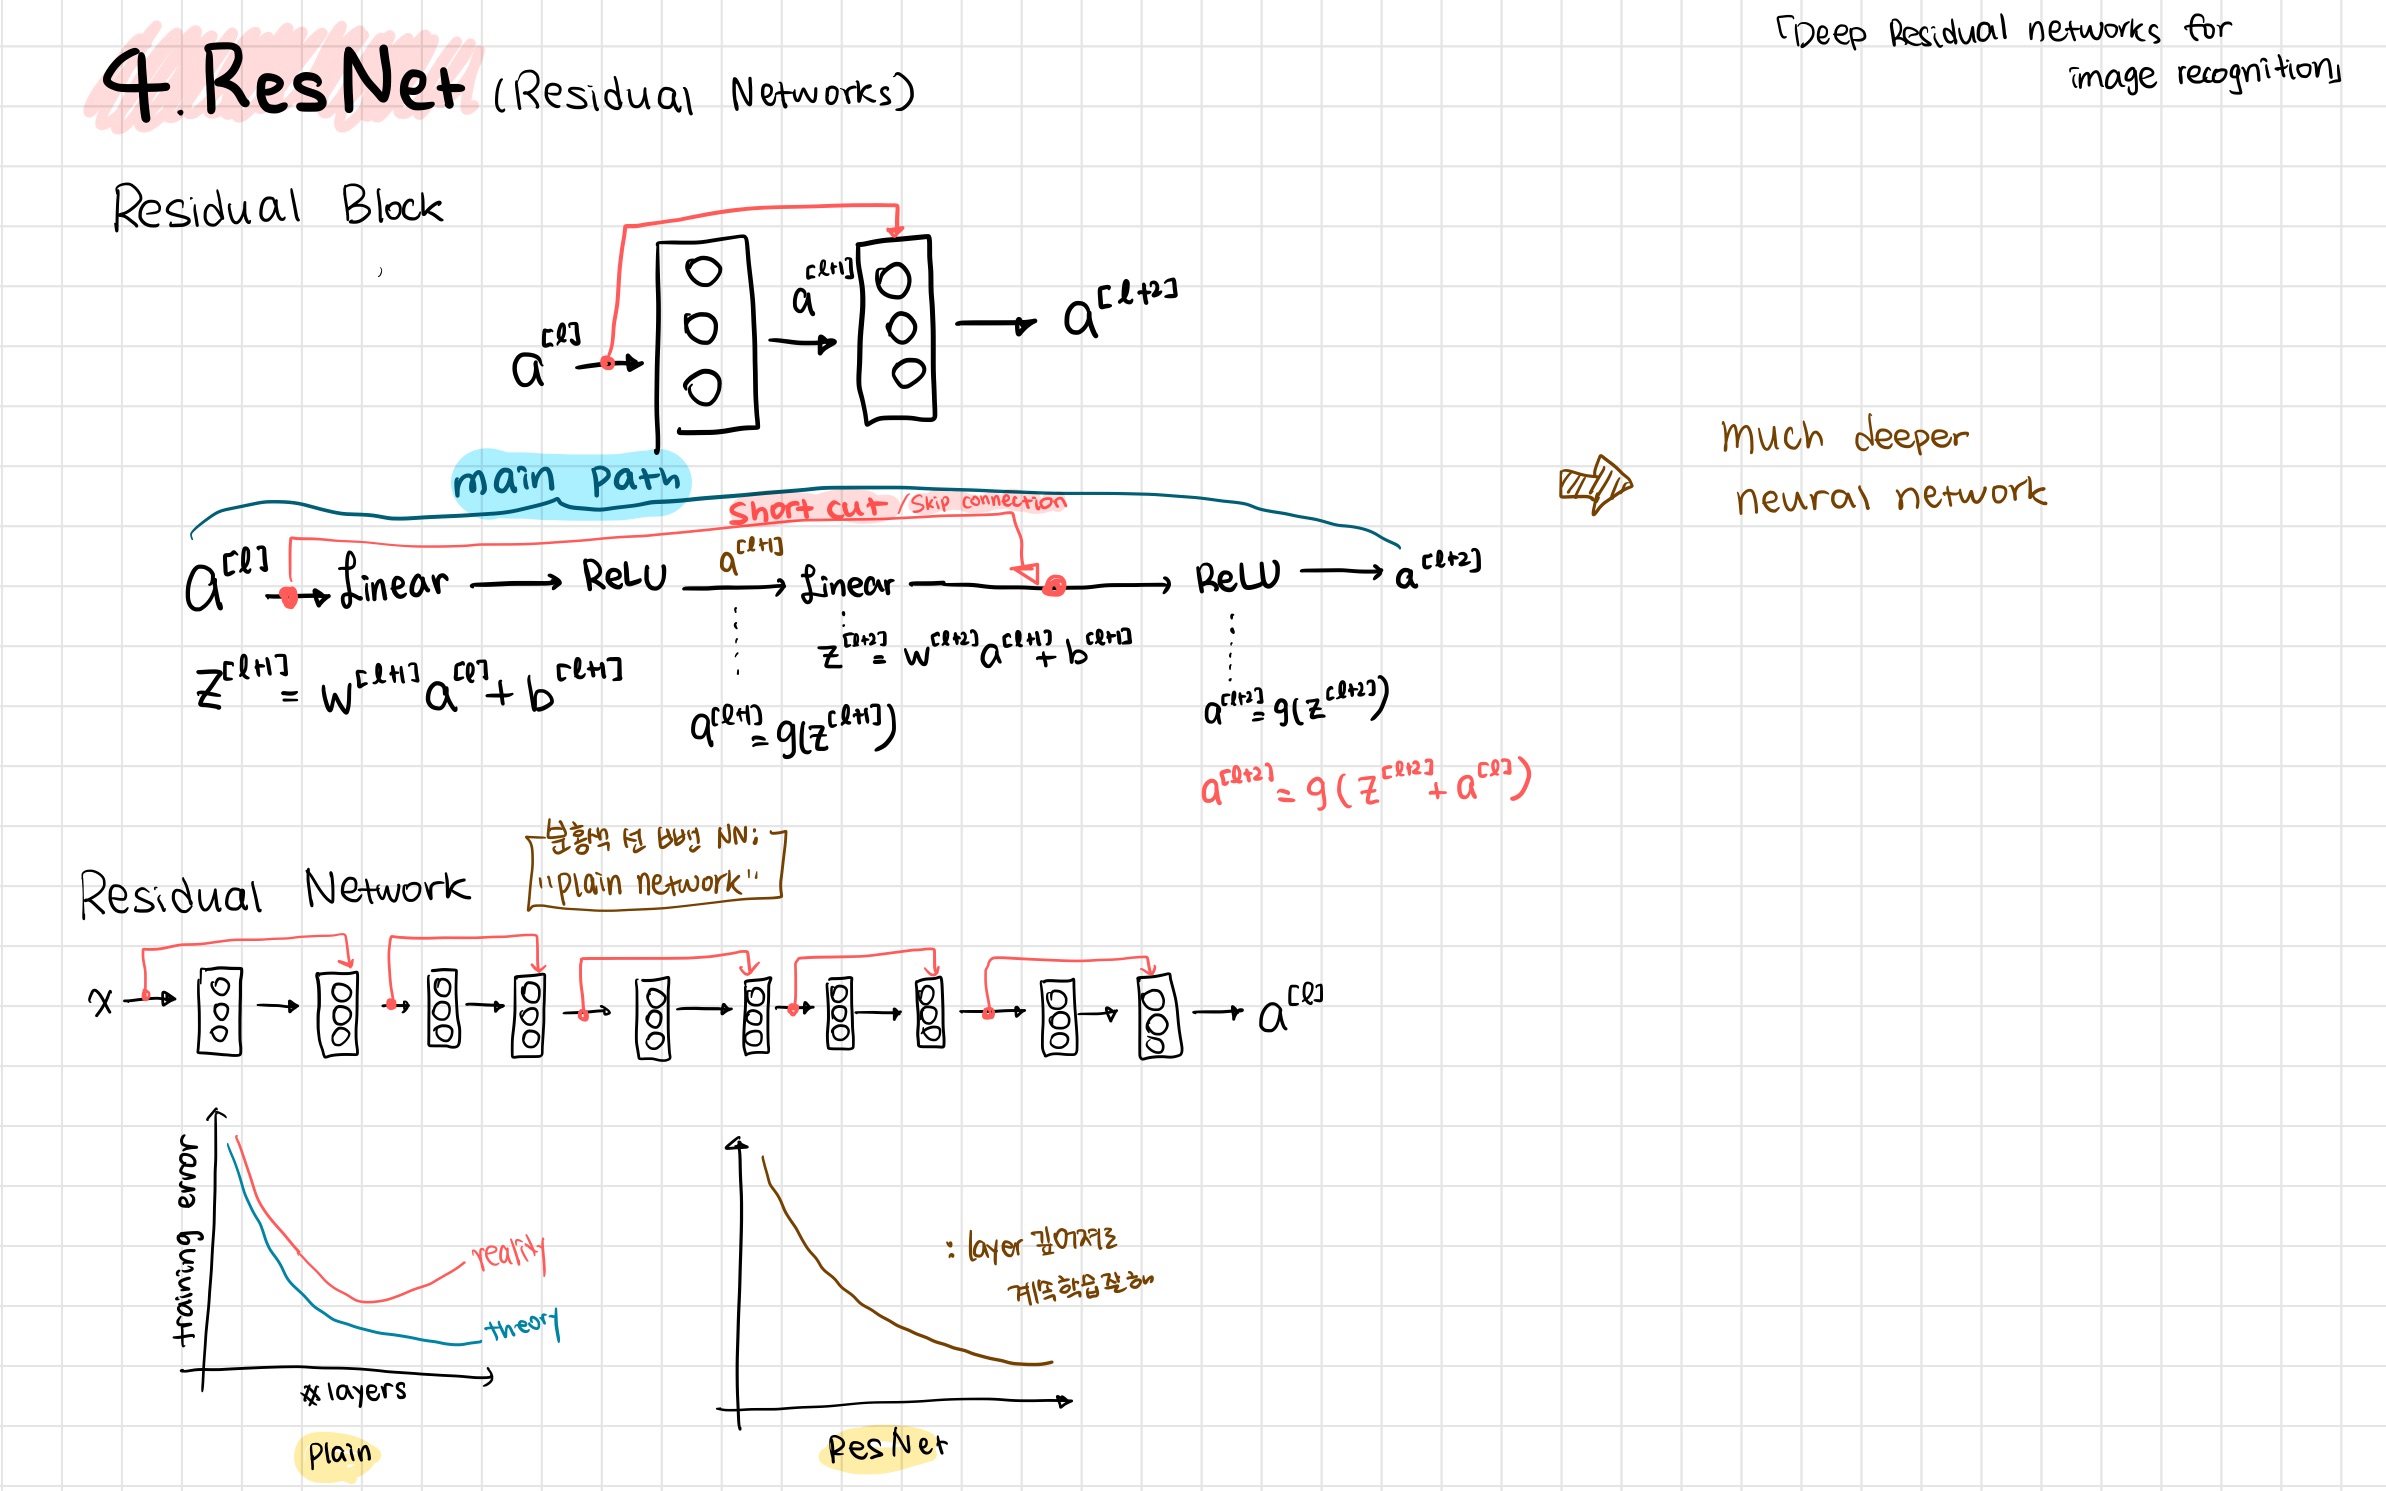 4. ResNet (Residual Networks)
「Deep Residual networks for
image recognition」
Residual Block
a^[l]
a^[l+1]
a^[l+2]
main path
short cut /skip connection
much deeper
neural network
a^[l] Linear ReLU a^[l+1] Linear ReLU a^[l+2]
z^[l+1] = w^[l+1] a^[l] + b^[l+1]
z^[l+2] = w^[l+2] a^[l+1] + b^[l+1]
a^[l+1] = g(z^[l+1])
a^[l+2] = g(z^[l+2])
a^[l+2] = g(z^[l+2] + a^[l])
Residual Network
분홍색 선 빼면 NN:
"plain network"
x
a^[l]
training error
reality
theory
# layers
plain
: layer 깊어져도
계속 학습 잘해
ResNet